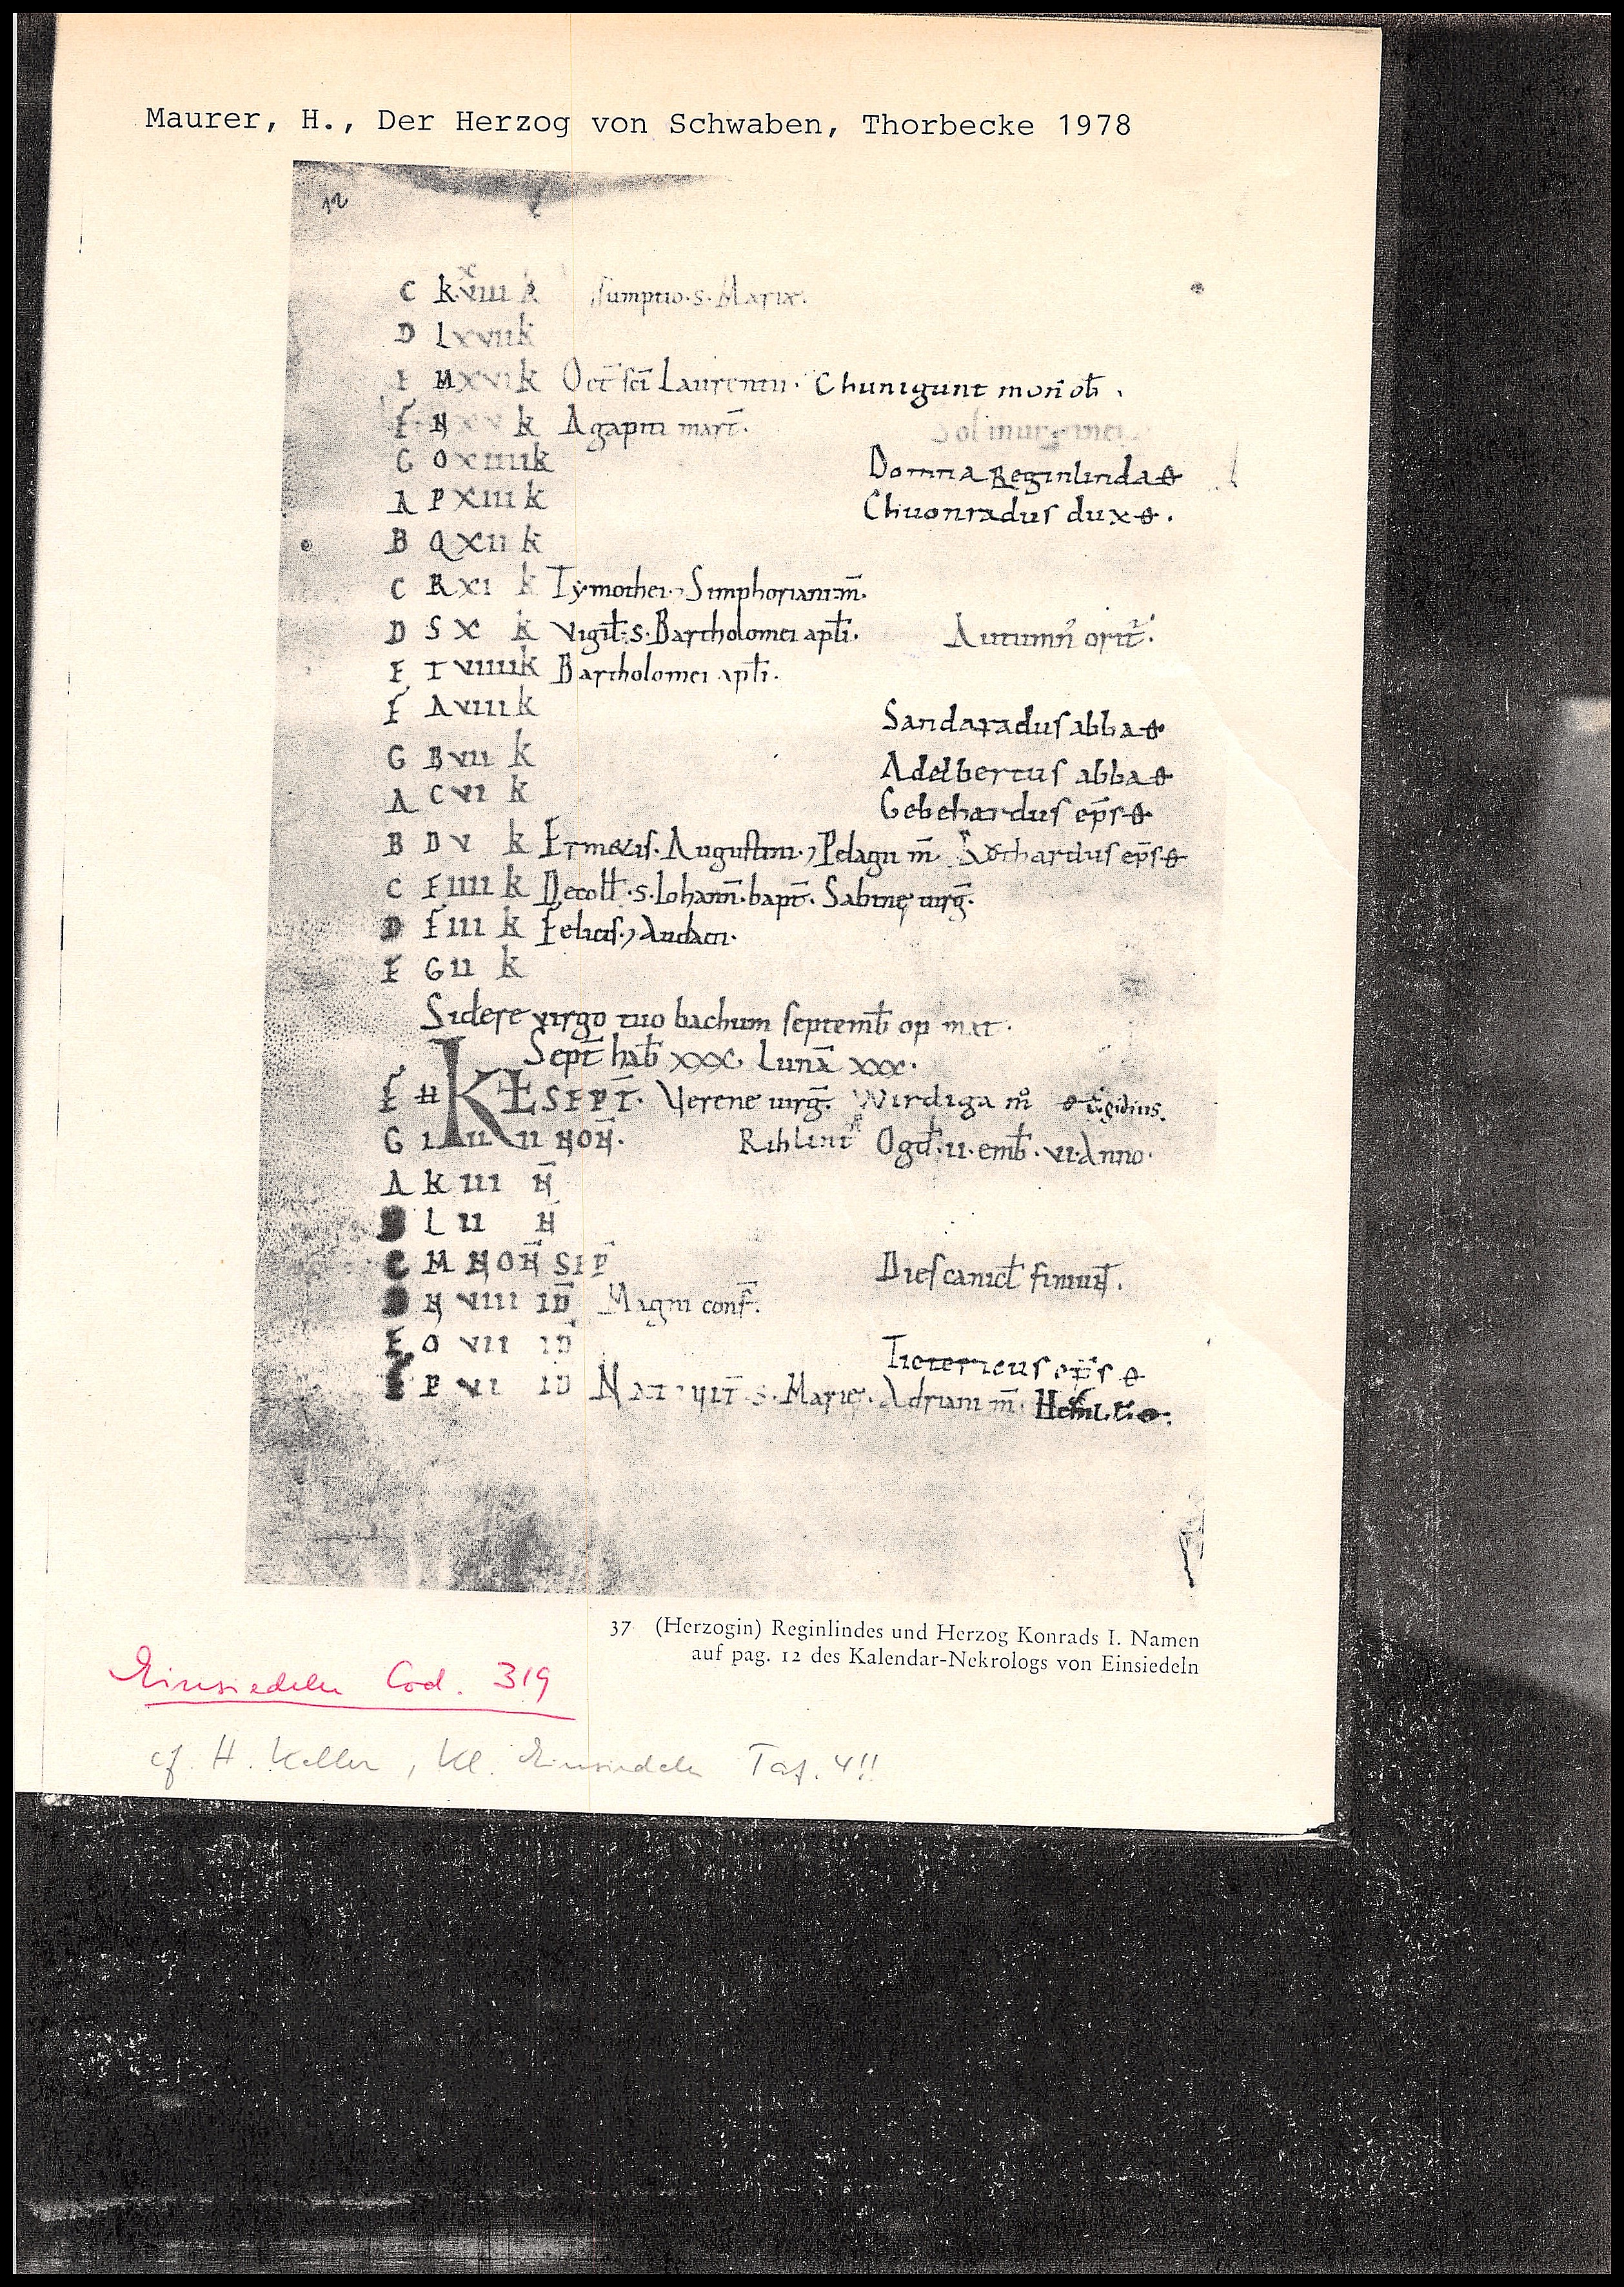 Maurer, H., Der Herzog von Schwaben, Thorbecke 1978
12
C k xviii k sumptio · s · Marię ·
D L xvii k
E M xvi k Oct̄ sc̄i Laurentii · Chunigunt mon̄ ob̄ ·
F N xv k Agapiti mart̄ · Sol in uirginem
G O xiiii k Domna Reginlinda ꝋ
A P xiii k Chuonradus dux ꝋ ·
B Q xii k
C R xi k Tymothei · Simphoriani m̄ ·
D S x k Vigil̄ · s · Bartholomei apl̄i · Autumn̄ orit̄ ·
E T viiii k Bartholomei apl̄i ·
F A viii k Sandaradus abba ꝋ
G B vii k Adelbertus abba ꝋ
A C vi k Gebehardus ep̄s ꝋ
B D v k Ermetis · Augustini · Pelagii m̄ · ep̄s ꝋ
C E iiii k Decoll̄ · s · Iohann̄ · bapt̄ · Sabinę uirḡ ·
D F iii k Felicis · Audacti ·
E G ii k
Sidere virgo tuo bachum septemb̄ opimat ·
Sept̄ hab̄ xxx · Luna xxx ·
F H KL̄ SEPT̄ · Verene uirḡ · Wirdiga m̊ ꝋ Egidius ·
G I iiii NON̄ · Rihlint Ogd̄ · ii · emb̄ · vi · Anno ·
A k iii N̄
B L ii N̄
C M NON̄ SEP̄ Dies canicl̄ finiunt̄ ·
D N viii ID̄ Magni conf̄ ·
E O vii ID Tietericus ep̄s ꝋ
F P vi ID Natiuit̄ · s · Marię · Adriani m̄ ·
37 (Herzogin) Reginlindes und Herzog Konrads I. Namen
auf pag. 12 des Kalendar-Nekrologs von Einsiedeln
Einsiedeln Cod. 319
cf. H. Keller, Kl. Einsiedeln Taf. 4!!